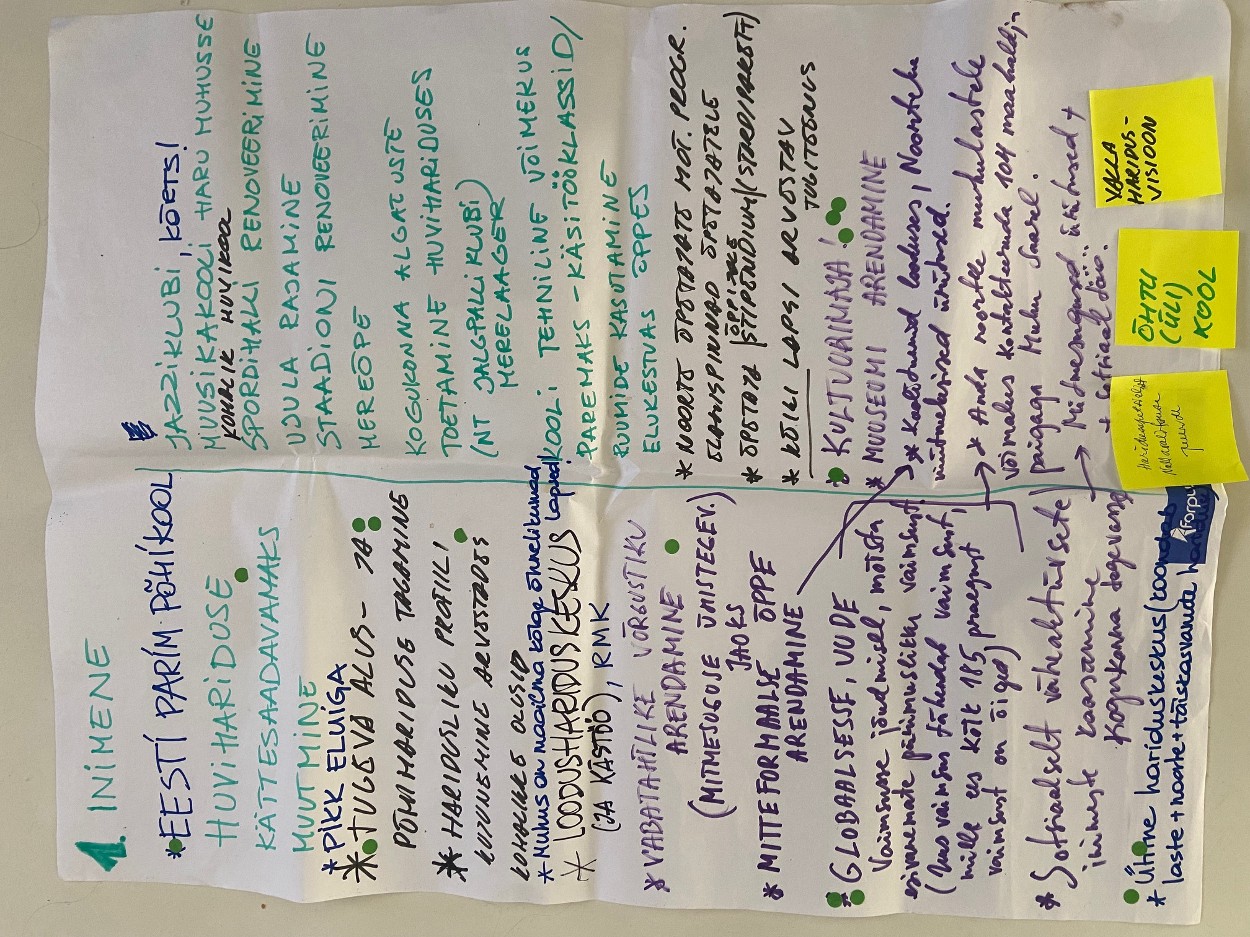 1. INIMENE
* EESTI PARIM PÕHIKOOL
HUVIHARIDUSE
KÄTTESAADAVAMAKS
MUUTMINE
* PIKK ELUIGA
* TUGEVA ALUS- JA
PÕHIHARIDUSE TAGAMINE
* HARIDUSLIKU PROFIIL
KUJUNEMINE ARVESTADES
KOHALIKE OLUSID
* Muhus on maailma kõige õnnelikumad lapsed!
* LOODUSHARIDUSKESKUS
(JA KÄSITÖÖ), RMK
* VABATAHTLIKE VÕRGUSTIKU
ARENDAMINE
(MITMESUGUSE ÜHISTEGEV.)
JAOKS
* MITTEFORMAALSE ÕPPE
ARENDAMINE
* GLOBAALSESSE, UUDE
Vaimsusse jõudmisel, mõista
esivanemate pärimuslikku vaimsust.
(Uus vaimsus tähendab vaimsust,
mille es kõik 1:1 praegust
vaimsust on õiged)
* Sotsiaalselt vähekaitsete
inimeste kaasamine
kogukonna tegevusse
* Ühine hariduskeskus (koondab
laste + noorte + täiskasvanute haridust
JAZZIKLUBI, KÕETS!
MUUSIKAKOOLI HARU MUHUSSE
KOHALIK HUVIKOOL
SPORDIHALLI RENOVEERIMINE
UJULA RAJAMINE
STAADIONI RENOVEERIMINE
MEREÕPE
KOGUKONNA ALGATUSTE
TOETAMINE HUVIHARIDUSES
(NT JALGPALLIKLUBI
MERELAAGER)
KOOLI TEHNILINE VÕIMEKUS
PAREMAKS - KÄSITÖÖKLASSID/
RUUMIDE KASUTAMINE
ELUKESTVAS ÕPPES
* NOORTE ÕPETAJATE MOT. PROGR.
ELAMISPINNAD ÕPETAJATELE
* ÕPETAJA | ÕPILASE STIPENDIUM
* KÕIKI LAPSI ARVESTAV
TUGITEENUS
* KULTUURIMAJA!
* MUUSEUMI ARENDAMINE
* Kooliõuned looduses, Noortele
mitmekesised üritused.
* Anda noortele muhulastele
võimalus kontakteeruda 104 maahaldja
paigaga Muhu Saarel.
→ Mitmesugused üritused +
+ sotsiaaltöö..
VALLA
HARIDUS-
VISIOON
ÕHTU
(ÜLI)
KOOL
Forpus